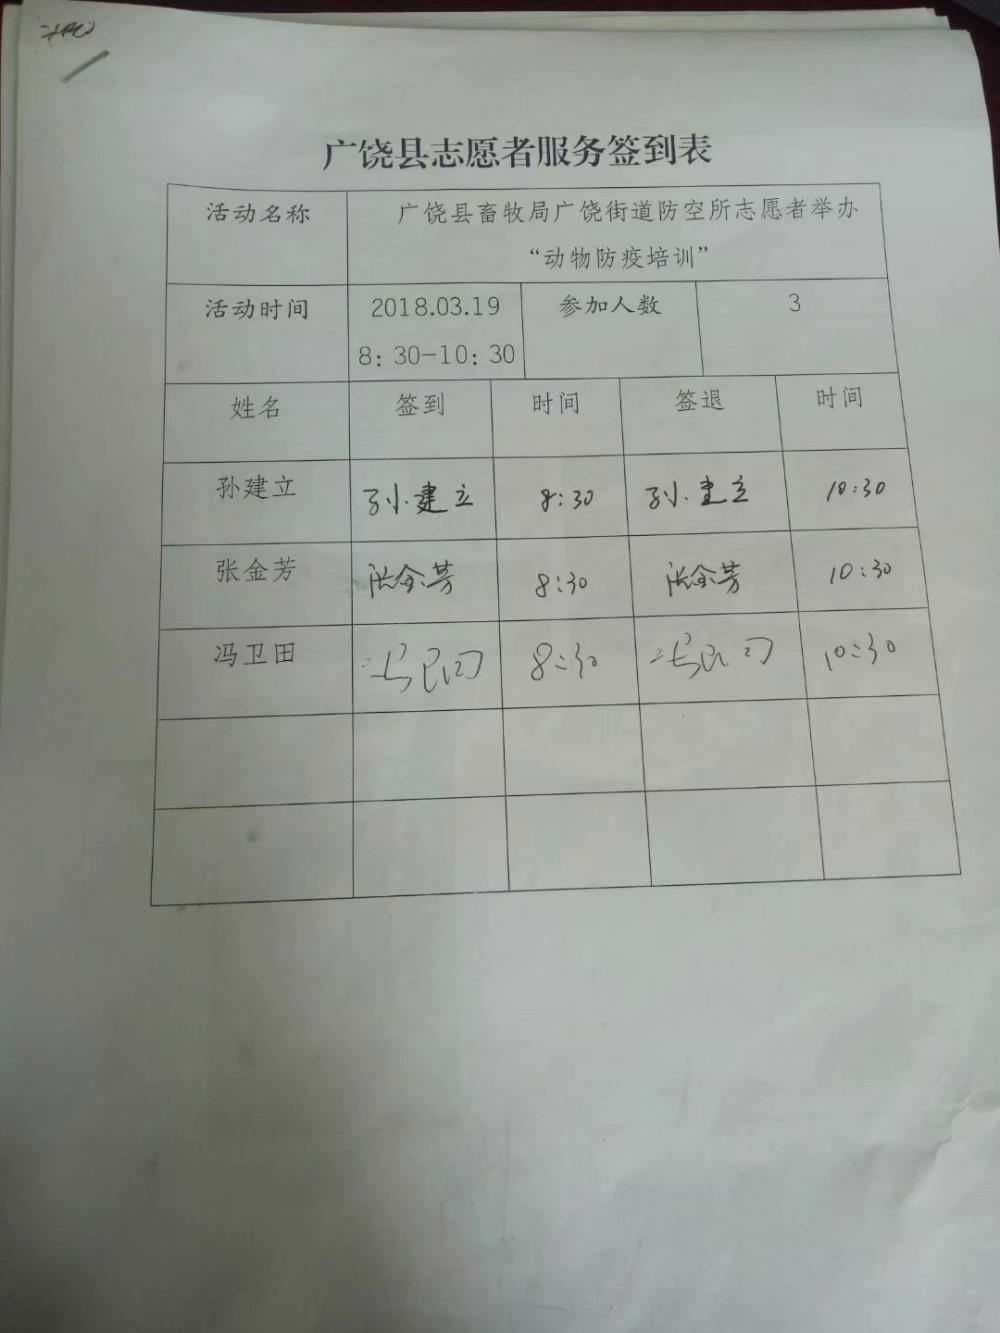 广饶县志愿者服务签到表
活动名称 广饶县畜牧局广饶街道防空所志愿者举办
“动物防疫培训”
活动时间 2018.03.19 参加人数 3
8：30-10：30
姓名 签到 时间 签退 时间
孙建立 孙建立 8:30 孙建立 10:30
张金芳 张金芳 8:30 张金芳 10:30
冯卫田 冯卫田 8:30 冯卫田 10:30